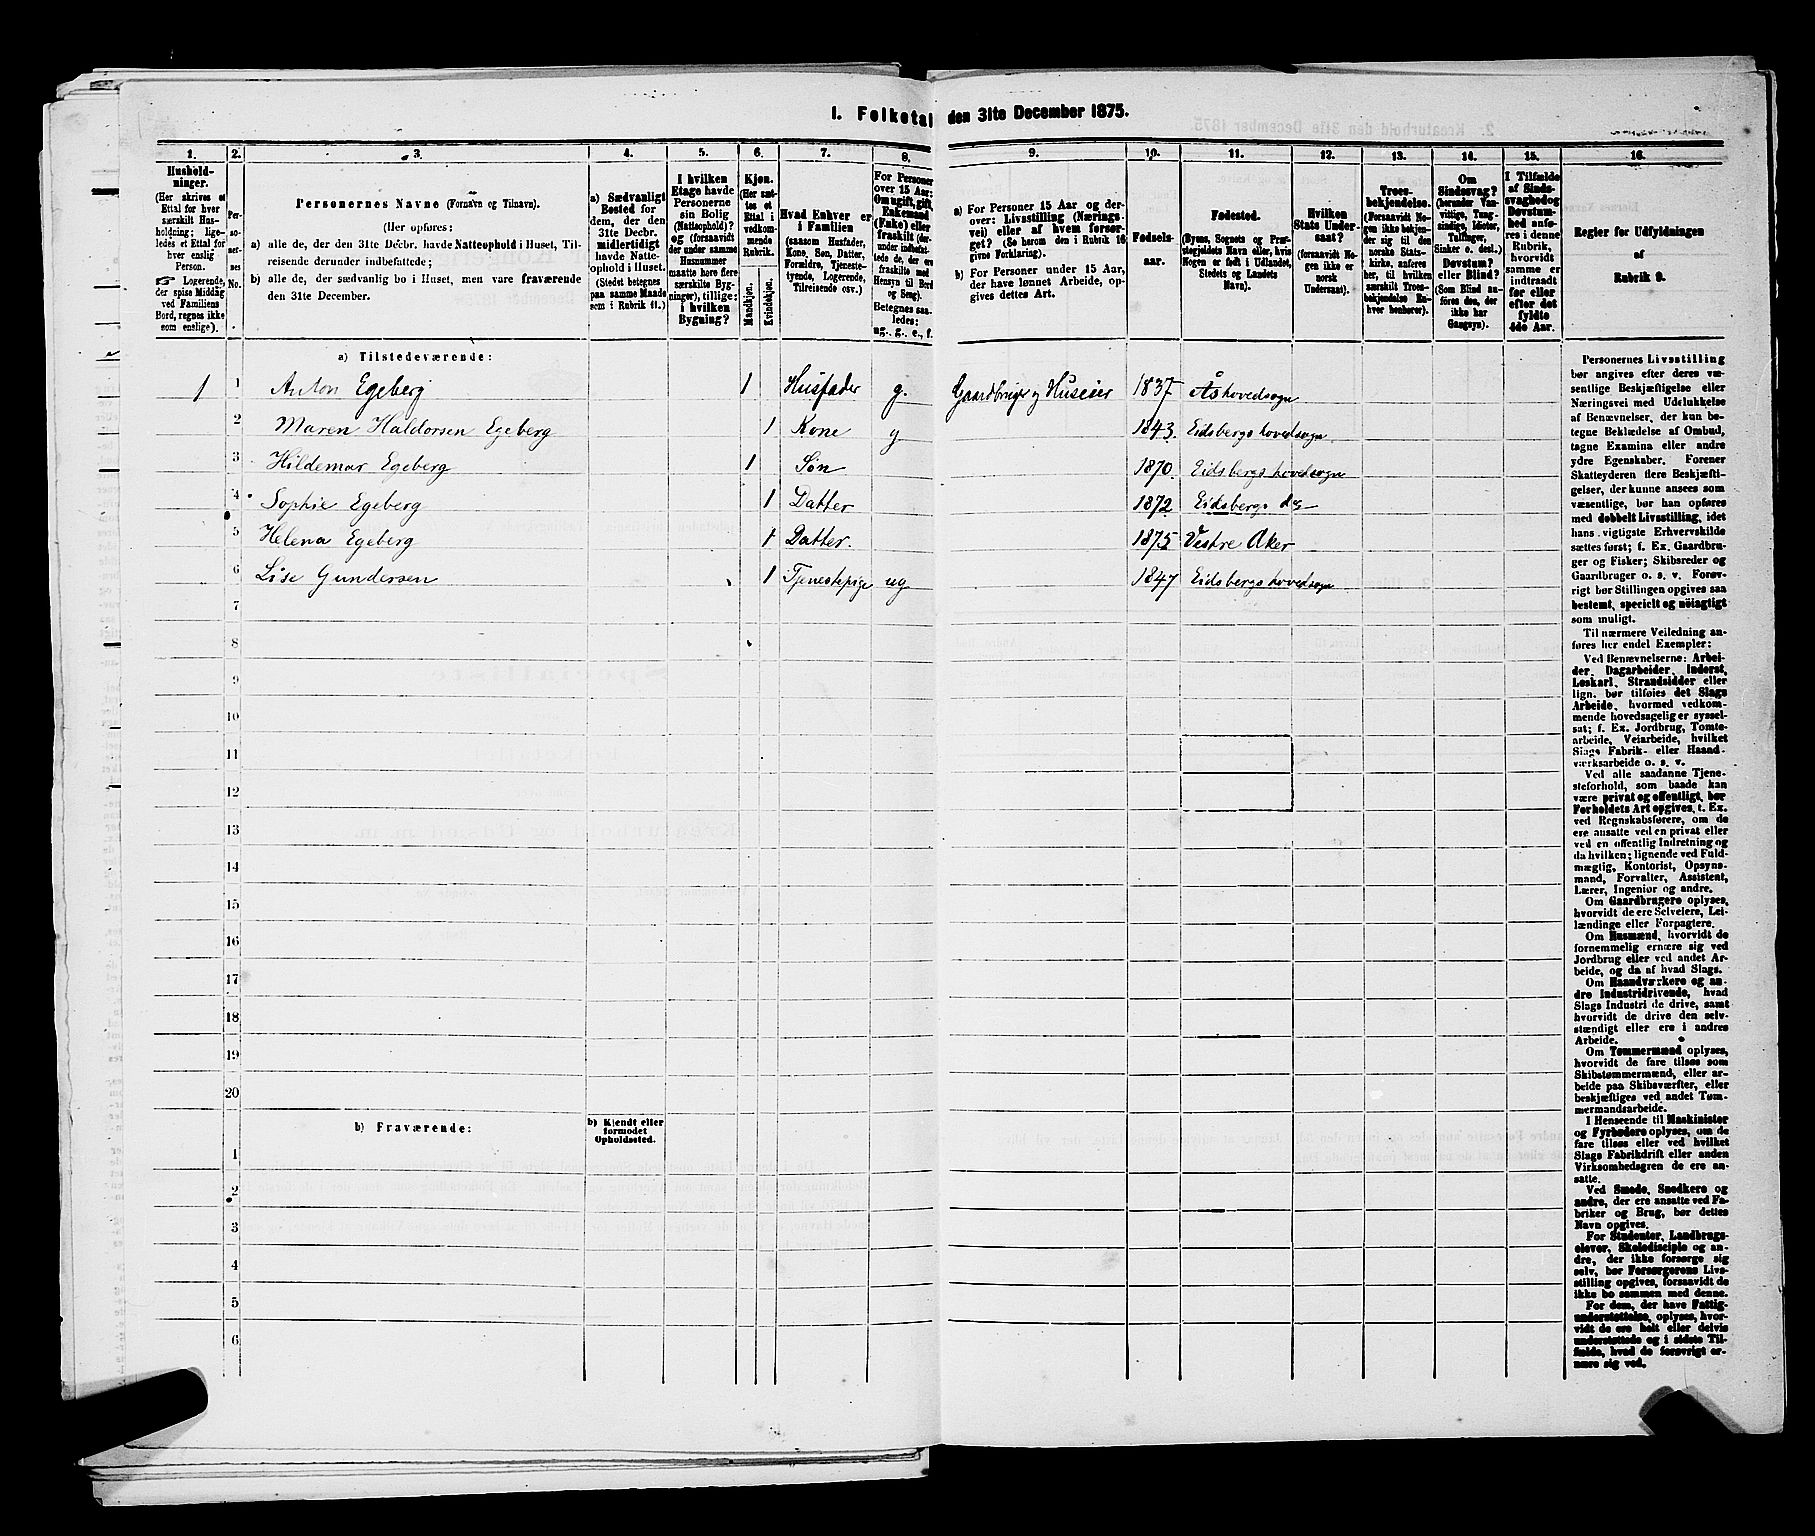 1. Folketal den 31te December 1875.
1. 2. 3. 4. 5. 6. 7. 8. 9. 10. 11. 12. 13. 14. 15. 16.
Hushold-
ninger.
(Her skrives et
Ettal for hver
særskilt Hus-
holdning; lige-
ledes et Ettal for
hver enslig
Person.
☞ Logerende,
der spise Middag
ved Familiens
Bord, regnes ikke
som enslige).
Per-
so-
ner-
nes
No.
Personernes Navne (Fornavn og Tilnavn).
(Her opføres:
a) alle de, der den 31te Decbr. havde Natteophold i Huset, Til-
reisende derunder indbefattede;
b) alle de, der sædvanlig bo i Huset, men vare fraværende
den 31te December.
a) Sædvanligt
Bosted for
dem, der den
31te Decbr.
midlertidigt
havde Natte-
ophold i Huset.
(Stedet betegnes
paa samme Maade
som i Rubrik 11.)
I hvilken
Etage havde
Personerne
sin Bolig
(Natteophold)?
og (forsaavidt
der under samme
Husnummer
maatte høre flere
særskilte Byg-
ninger), tillige:
i hvilken
Bygning?
Kjøn.
(Her sæt-
tes et
Ettal i
vedkom-
mende
Rubrik.
Mandkjøn.
Kvindekjøn.
Hvad Enhver er
i Familien
(saasom Husfader,
Kone, Søn, Datter,
Forældre, Tjeneste-
tyende, Logerende,
Tilreisende osv.)
For Personer
over 15 Aar:
Om ugift, gift,
Enkemand
(Enke) eller
fraskilt (der-
under indbefat-
tede de, der ere
fraskilte med
Hensyn til Bord
og Seng).
Betegnes saa-
ledes:
ug., g., e., f.
a) For Personer 15 Aar og der-
over: Livsstilling (Nærings-
vei) eller af hvem forsør-
get? (Se herom den i Rubrik 16
givne Forklaring).
b) For Personer under 15 Aar,
der have lønnet Arbeide, op-
gives dettes Art.
Fødsels-
aar.
Fødested.
(Byens, Sognets og Præ-
stegjeldets Navn eller, hvis
Nogen er født i Udlandet,
Stedets og Landets
Navn).
Hvilken
Stats Under-
saat?
(forsaavidt No-
gen ikke er
norsk
Undersaat).
Troes-
bekjendelse.
(Forsaavidt No-
gen ikke bekjen-
der sig til den
norske Stats-
kirke, anføres
her, til hvilken
særskilt Troes-
bekjendelse En-
hver henhører).
Om
Sindssvag?
(herunder Van-
vittige, Tung-
sindige, Idioter,
Tullinger,
Sinker o. desl.)
Døvstum?
eller Blind?
(Som Blind an-
føres den, der
ikke har
Gangsyn).
I Tilfælde
af Sinds-
svaghed og
Døvstum-
hed anfø-
res i denne
Rubrik,
hvorvidt
samme er
indtraadt
før eller
efter det
fyldte
4de Aar.
Regler for Udfyldningen
af
Rubrik 9.
a) Tilstedeværende:
1 1 Anton Egeberg 1 Husfader g. Gaardbruger og Huseier 1837 Ås hovedsogn
2 Maren Haldorsen Egeberg 1 Kone g 1843. Eidsbergs hovedsogn
3 Hildemar Egeberg 1 Søn 1870. Eidsbergs hovedsogn
4 Sophie Egeberg 1 Datter 1872 Eidsbergs do
5 Helena Egeberg 1 Datter. 1875 Vestre Aker
6 Lise Gundersen 1 Tjenestepige ug 1847 Eidsbergs hovedsogn
7
8
9
10
11
12
13
14
15
16
17
18
19
20
b) Fraværende:
b) Kjendt eller
formodet
Opholdssted.
1
2
3
4
5
6
Personernes Livsstilling
bør angives efter deres væ-
sentlige Beskjæftigelse eller
Næringsvei med Udelukkelse
af Benævnelser, der kun be-
tegne Beklædelse af Ombud,
tagne Examina eller andre
ydre Egenskaber. Forener
Skatteyderen flere Beskjæfti-
gelser, der kunne ansees som
væsentlige, bør han opføres
med dobbelt Livsstilling, idet
hans vigtigste Erhvervskilde
sættes først; f. Ex. Gaardbru-
ger og Fisker; Skibsreder og
Gaardbruger o. s. v. Forøv-
rigt bør Stillingen opgives saa
bestemt, specielt og nöiagtigt
som muligt.
Til nærmere Veiledning an-
føres her endel Exempler:
Ved Benævnelserne: Arbei-
der, Dagarbeider, Inderst,
Løskarl, Strandsidder eller
lign. bør tilføies det Slags
Arbeide, hvormed vedkom-
mende hovedsagelig er syssel-
sat; f. Ex. Jordbrug, Tomte-
arbeide, Veiarbeide, hvilket
Slags Fabrik- eller Haand-
værksarbeide o. s. v.
Ved alle saadanne Tjene-
steforhold, som baade kan
være privat og offentligt, bør
Forholdets Art opgives, t. Ex.
ved Regnskabsførere, om de
ere ansatte ved en privat eller
ved en offentlig Indretning og
da hvilken; lignende ved Fuld-
mægtig, Kontorist, Opsyns-
mand, Forvalter, Assistent,
Lærer, Ingeniør og andre.
Om Gaardbrugere oplyses,
hvorvidt de ere Selveiere, Lei-
lændinge eller Forpagtere.
Om Husmænd, hvorvidt de
fornemmelig ernære sig ved
Jordbrug eller ved andet Ar-
beide, og da af hvad Slags.
Om Haandværkere og an-
dre Industridrivende, hvad
Slags Industri de drive, samt
hvorvidt de drive den selv-
stændigt eller ere i andres
Arbeide.
Om Tømmermænd oplyses,
hvorvidt de fare tilsøs som
Skibstømmermænd, eller ar-
beide paa Skibsværfter, eller
beskjæftiges ved andet Tøm-
mermandsarbeide.
I Henseende til Maskinister
og Fyrbødere oplyses, om de
fare tilsøs eller ved hvilket
Slags Fabrikdrift eller anden
Virksombedsgren de ere an-
satte.
Ved Smede, Snedkere og
andre, der ere ansatte ved Fa-
briker og Brug, bør dettes
Navn opgives.
For Studenter, Landbrugs-
elever, Skoledisciple og an-
dre, der ikke forsørge sig
selv, bør Forsørgerens Livs-
stilling opgives, forsaavidt de
ikke bo sammen med denne.
For dem, der have Fattig-
understøttelse, oplyses, hvor-
vidt de ere helt eller delvis
understøttede og i sidste Til-
fælde, hvad de forøvrigt er-
nære sig ved.